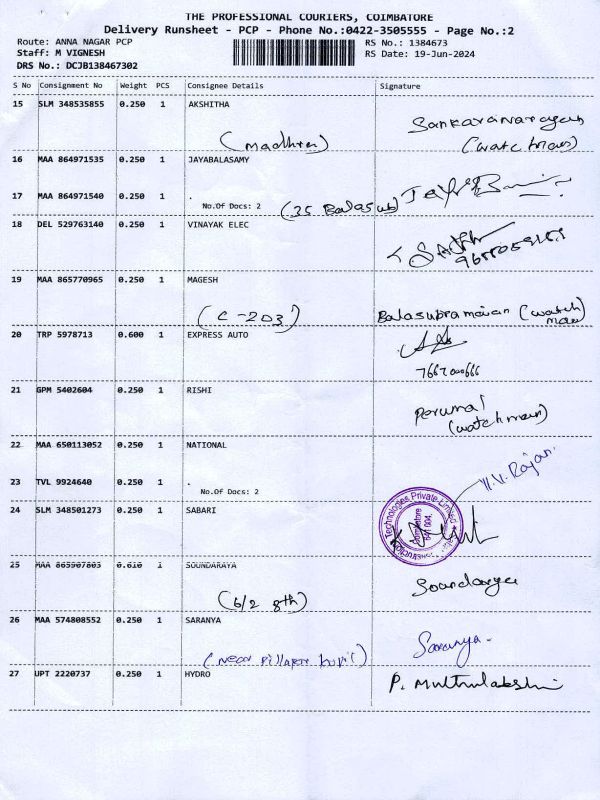 THE PROFESSIONAL COURIERS, COIMBATORE
Delivery Runsheet - PCP - Phone No.:0422-3505555 - Page No.:2
Route: ANNA NAGAR PCP
RS No.: 1384673
Staff: M VIGNESH
RS Date: 19-Jun-2024
DRS No.: DCJB138467302
S No Consignment No Weight PCS Consignee Details Signature
15 SLM 348535855 0.250 1 AKSHITHA
Sankaranarayan
(Madhra) (watchman)
16 MAA 864971535 0.250 1 JAYABALASAMY
17 MAA 864971540 0.250 1 .
No.Of Docs: 2 (35 Balasub)
18 DEL 529763140 0.250 1 VINAYAK ELEC
19 MAA 865770965 0.250 1 MAGESH
(C-203) Balasubramaian (watchman)
20 TRP 5978713 0.600 1 EXPRESS AUTO
7667000666
21 GPM 5402604 0.250 1 RISHI
Perumal
(watchman)
22 MAA 650113052 0.250 1 NATIONAL
V. Rajan.
23 TVL 9924640 0.250 1 .
No.Of Docs: 2
24 SLM 348501273 0.250 1 SABARI
Technologies Private Limited
Coimbatore
641 004.
25 MAA 865907803 0.610 1 SOUNDARAYA
Soundarya
(6/2 8th)
26 MAA 574808552 0.250 1 SARANYA
Saranya
(Near Pillayar kovil)
27 UPT 2220737 0.250 1 HYDRO
P. Muthulakshmi